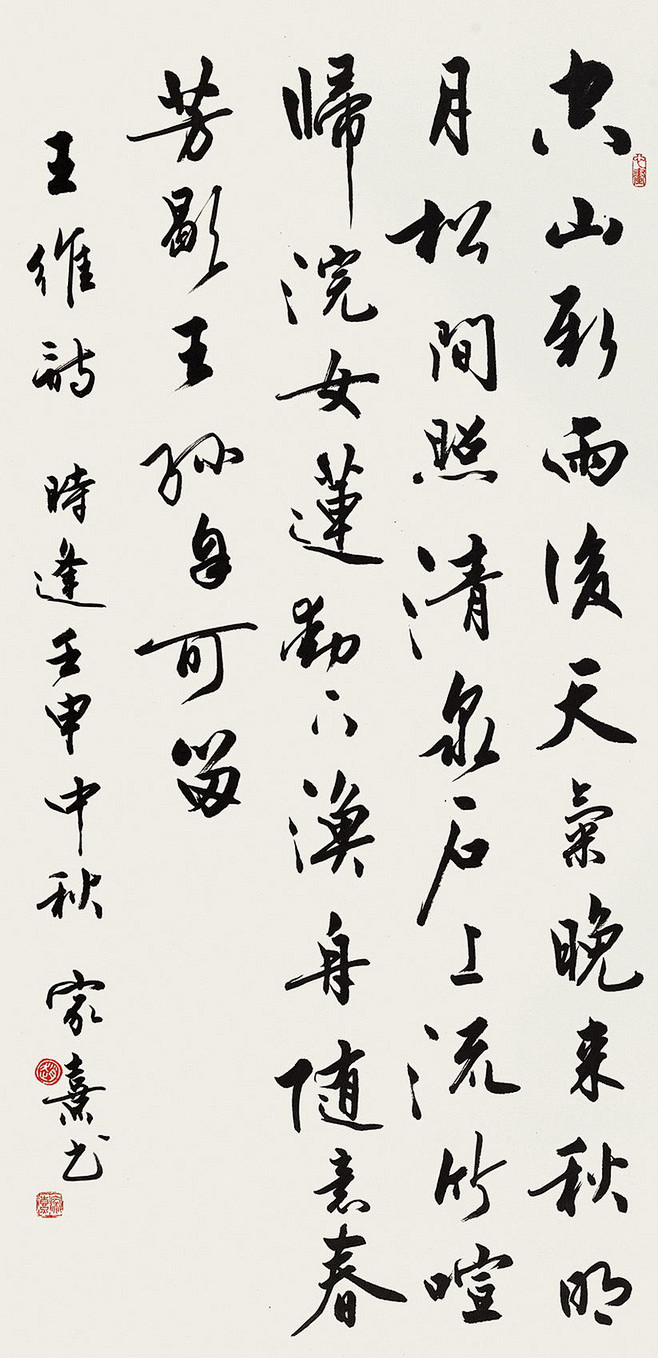 空山新雨後天氣晚来秋明
月松間照清泉石上流竹喧
帰浣女蓮動下漁舟随意春
芳歇王孫自可留
王維詩 時逢壬申中秋 家熹书